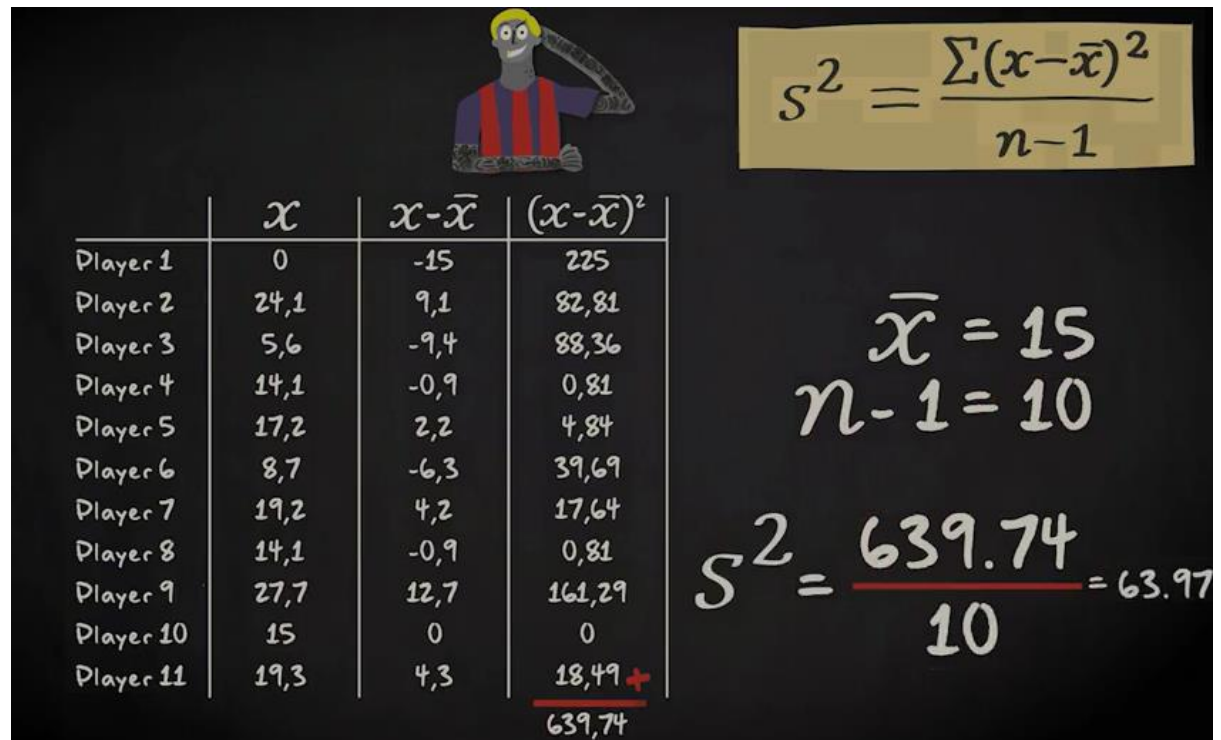 s² = Σ(x-x̄)² / n-1
x | x-x̄ | (x-x̄)²
Player 1 | 0 | -15 | 225
Player 2 | 24,1 | 9,1 | 82,81
Player 3 | 5,6 | -9,4 | 88,36
Player 4 | 14,1 | -0,9 | 0,81
Player 5 | 17,2 | 2,2 | 4,84
Player 6 | 8,7 | -6,3 | 39,69
Player 7 | 19,2 | 4,2 | 17,64
Player 8 | 14,1 | -0,9 | 0,81
Player 9 | 27,7 | 12,7 | 161,29
Player 10 | 15 | 0 | 0
Player 11 | 19,3 | 4,3 | 18,49 +
639,74
x̄ = 15
n-1 = 10
S² = 639.74 / 10 = 63.97